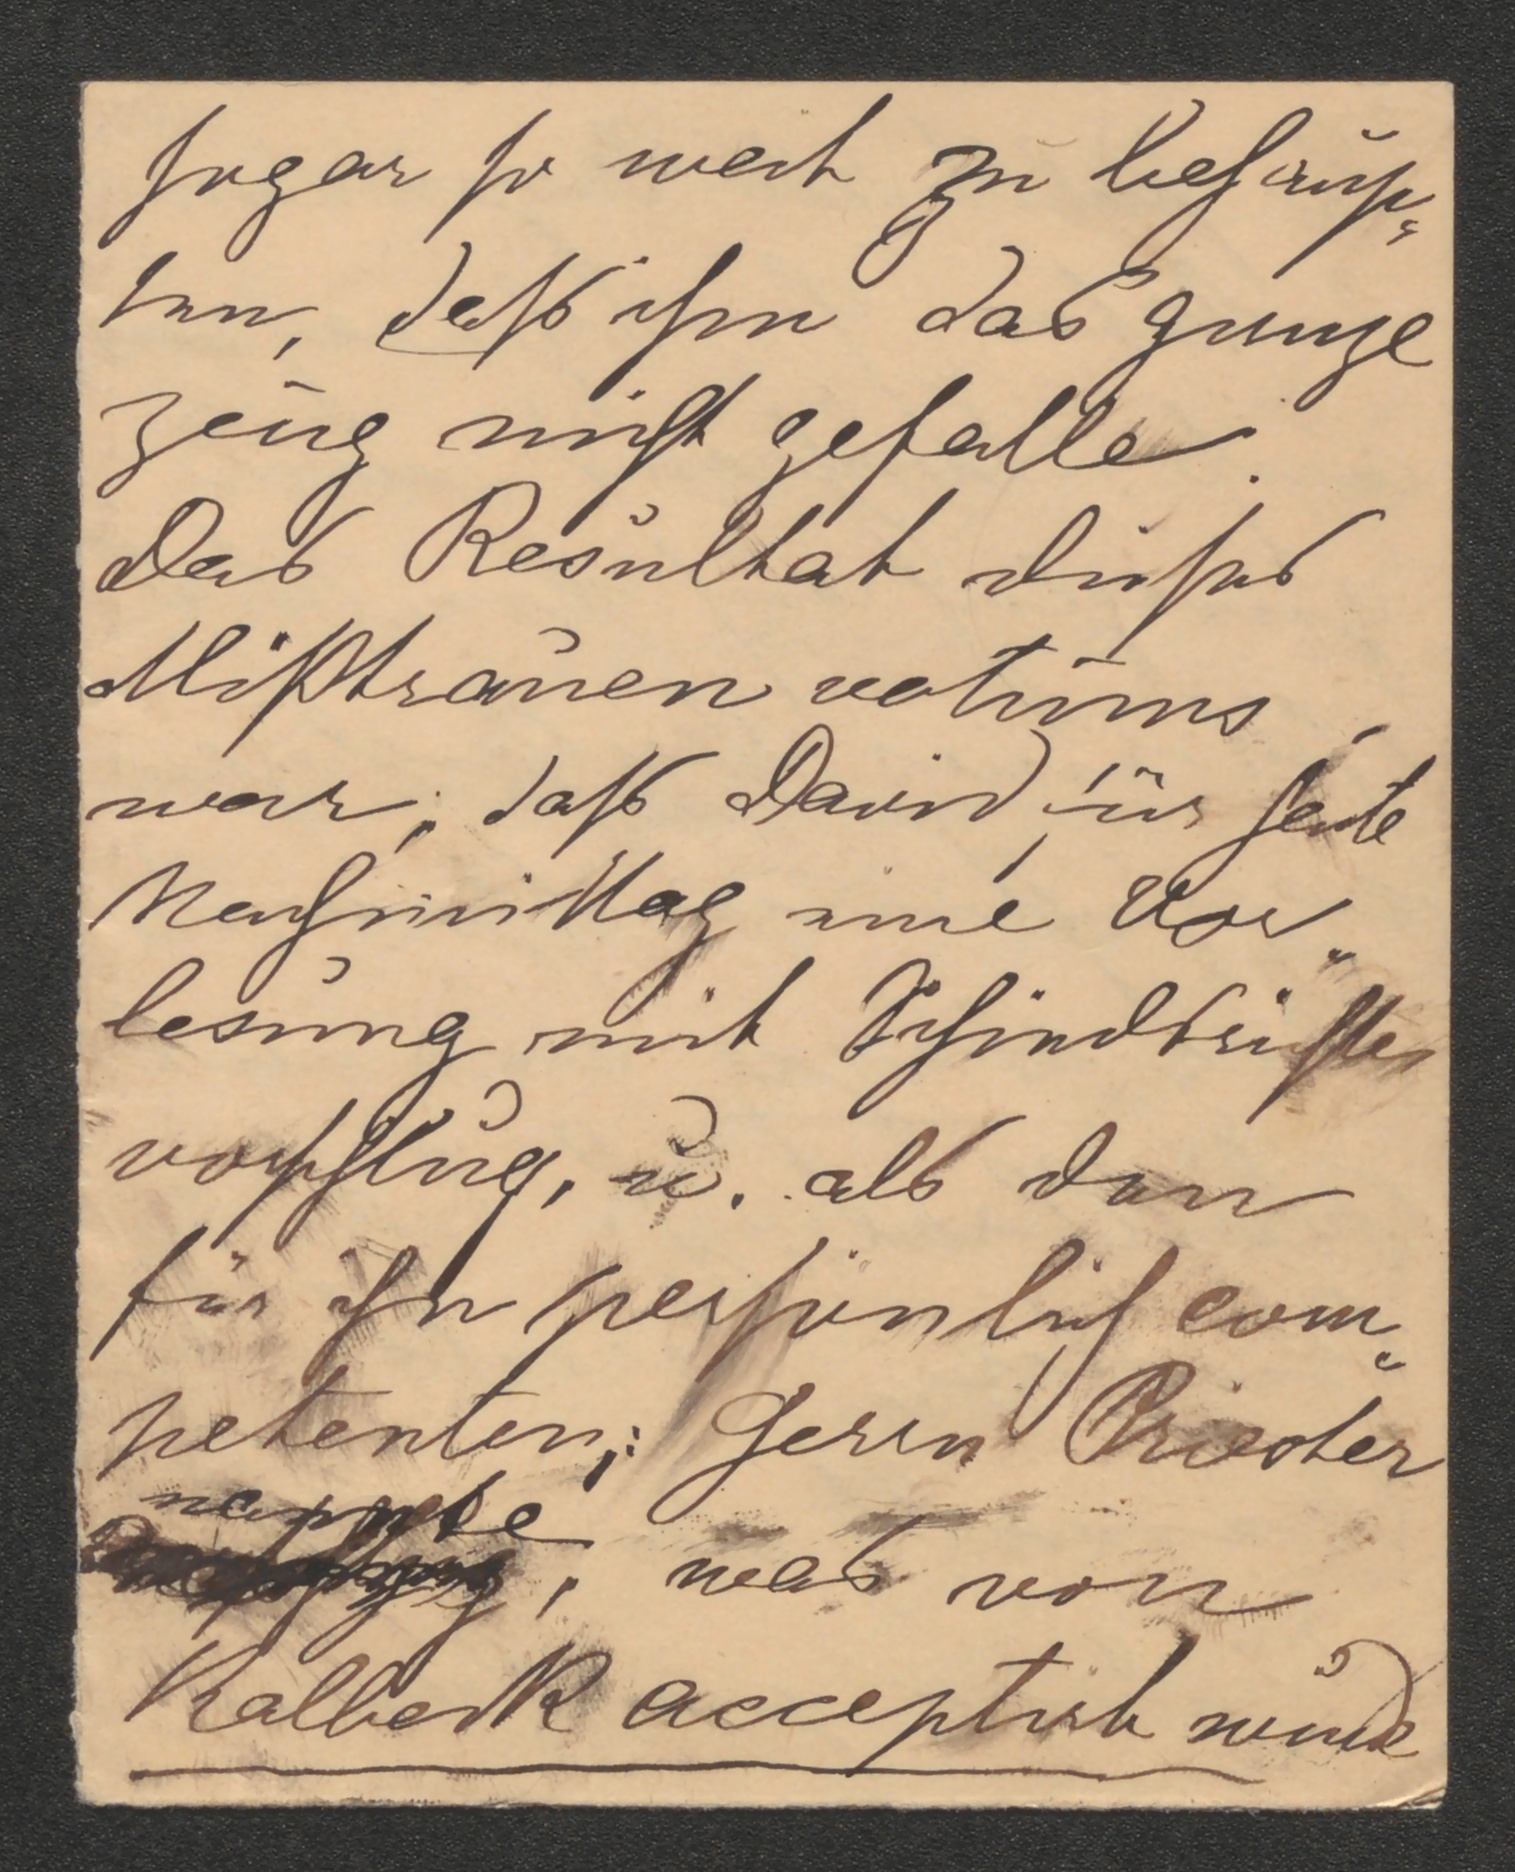 sogar so weit zu behaup-
ten, daß ihm das ganze
Zeug nicht gefalle.
Das Resultat dieses
Mißtrauen votums
war, daß David für heute
Nachmittag eine Vor-
lesung mit Schiedsrichter
vorschlug, u. als den
für ihn persönlich com-
petenten, Herrn Priester
nannte, was von
Kalbeck acceptirt wurde